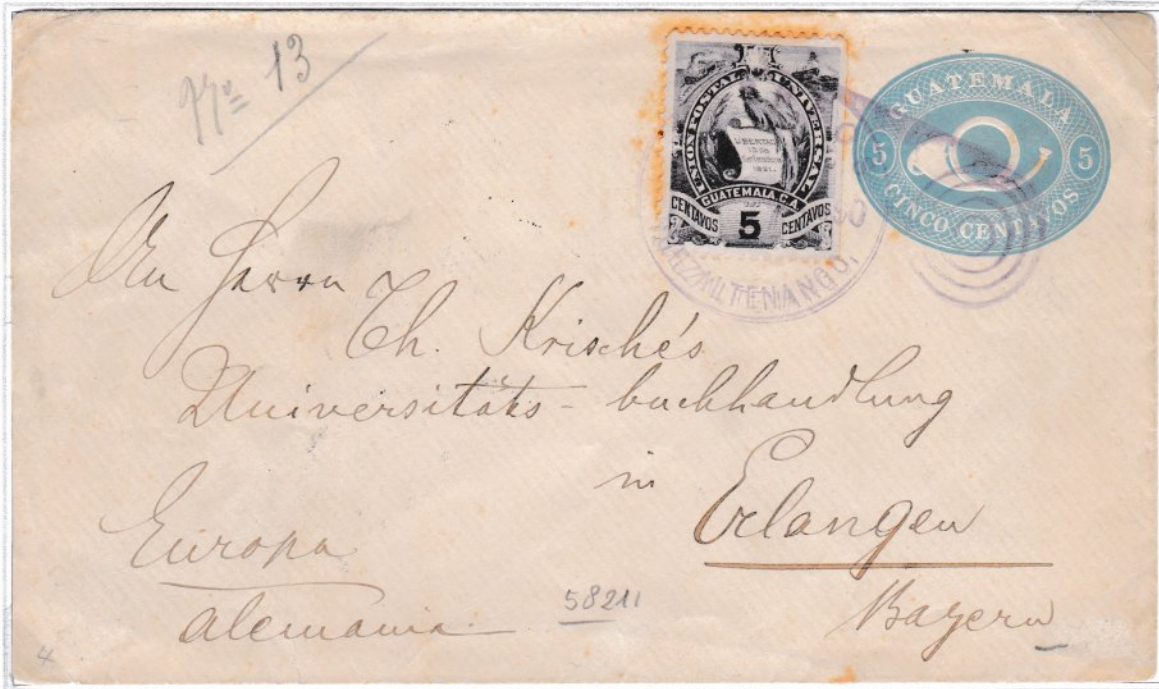 No 13
UNION POSTAL UNIVERSAL
LIBERTAD
15 de
Setiembre
1821.
GUATEMALA. C.A
CENTAVOS 5 CENTAVOS
GUATEMALA
5 5
CINCO CENTAVOS
An Herrn
Th. Krische's
Universitäts-buchhandlung
in
Erlangen
Bayern
Europa
Alemania
58211
4